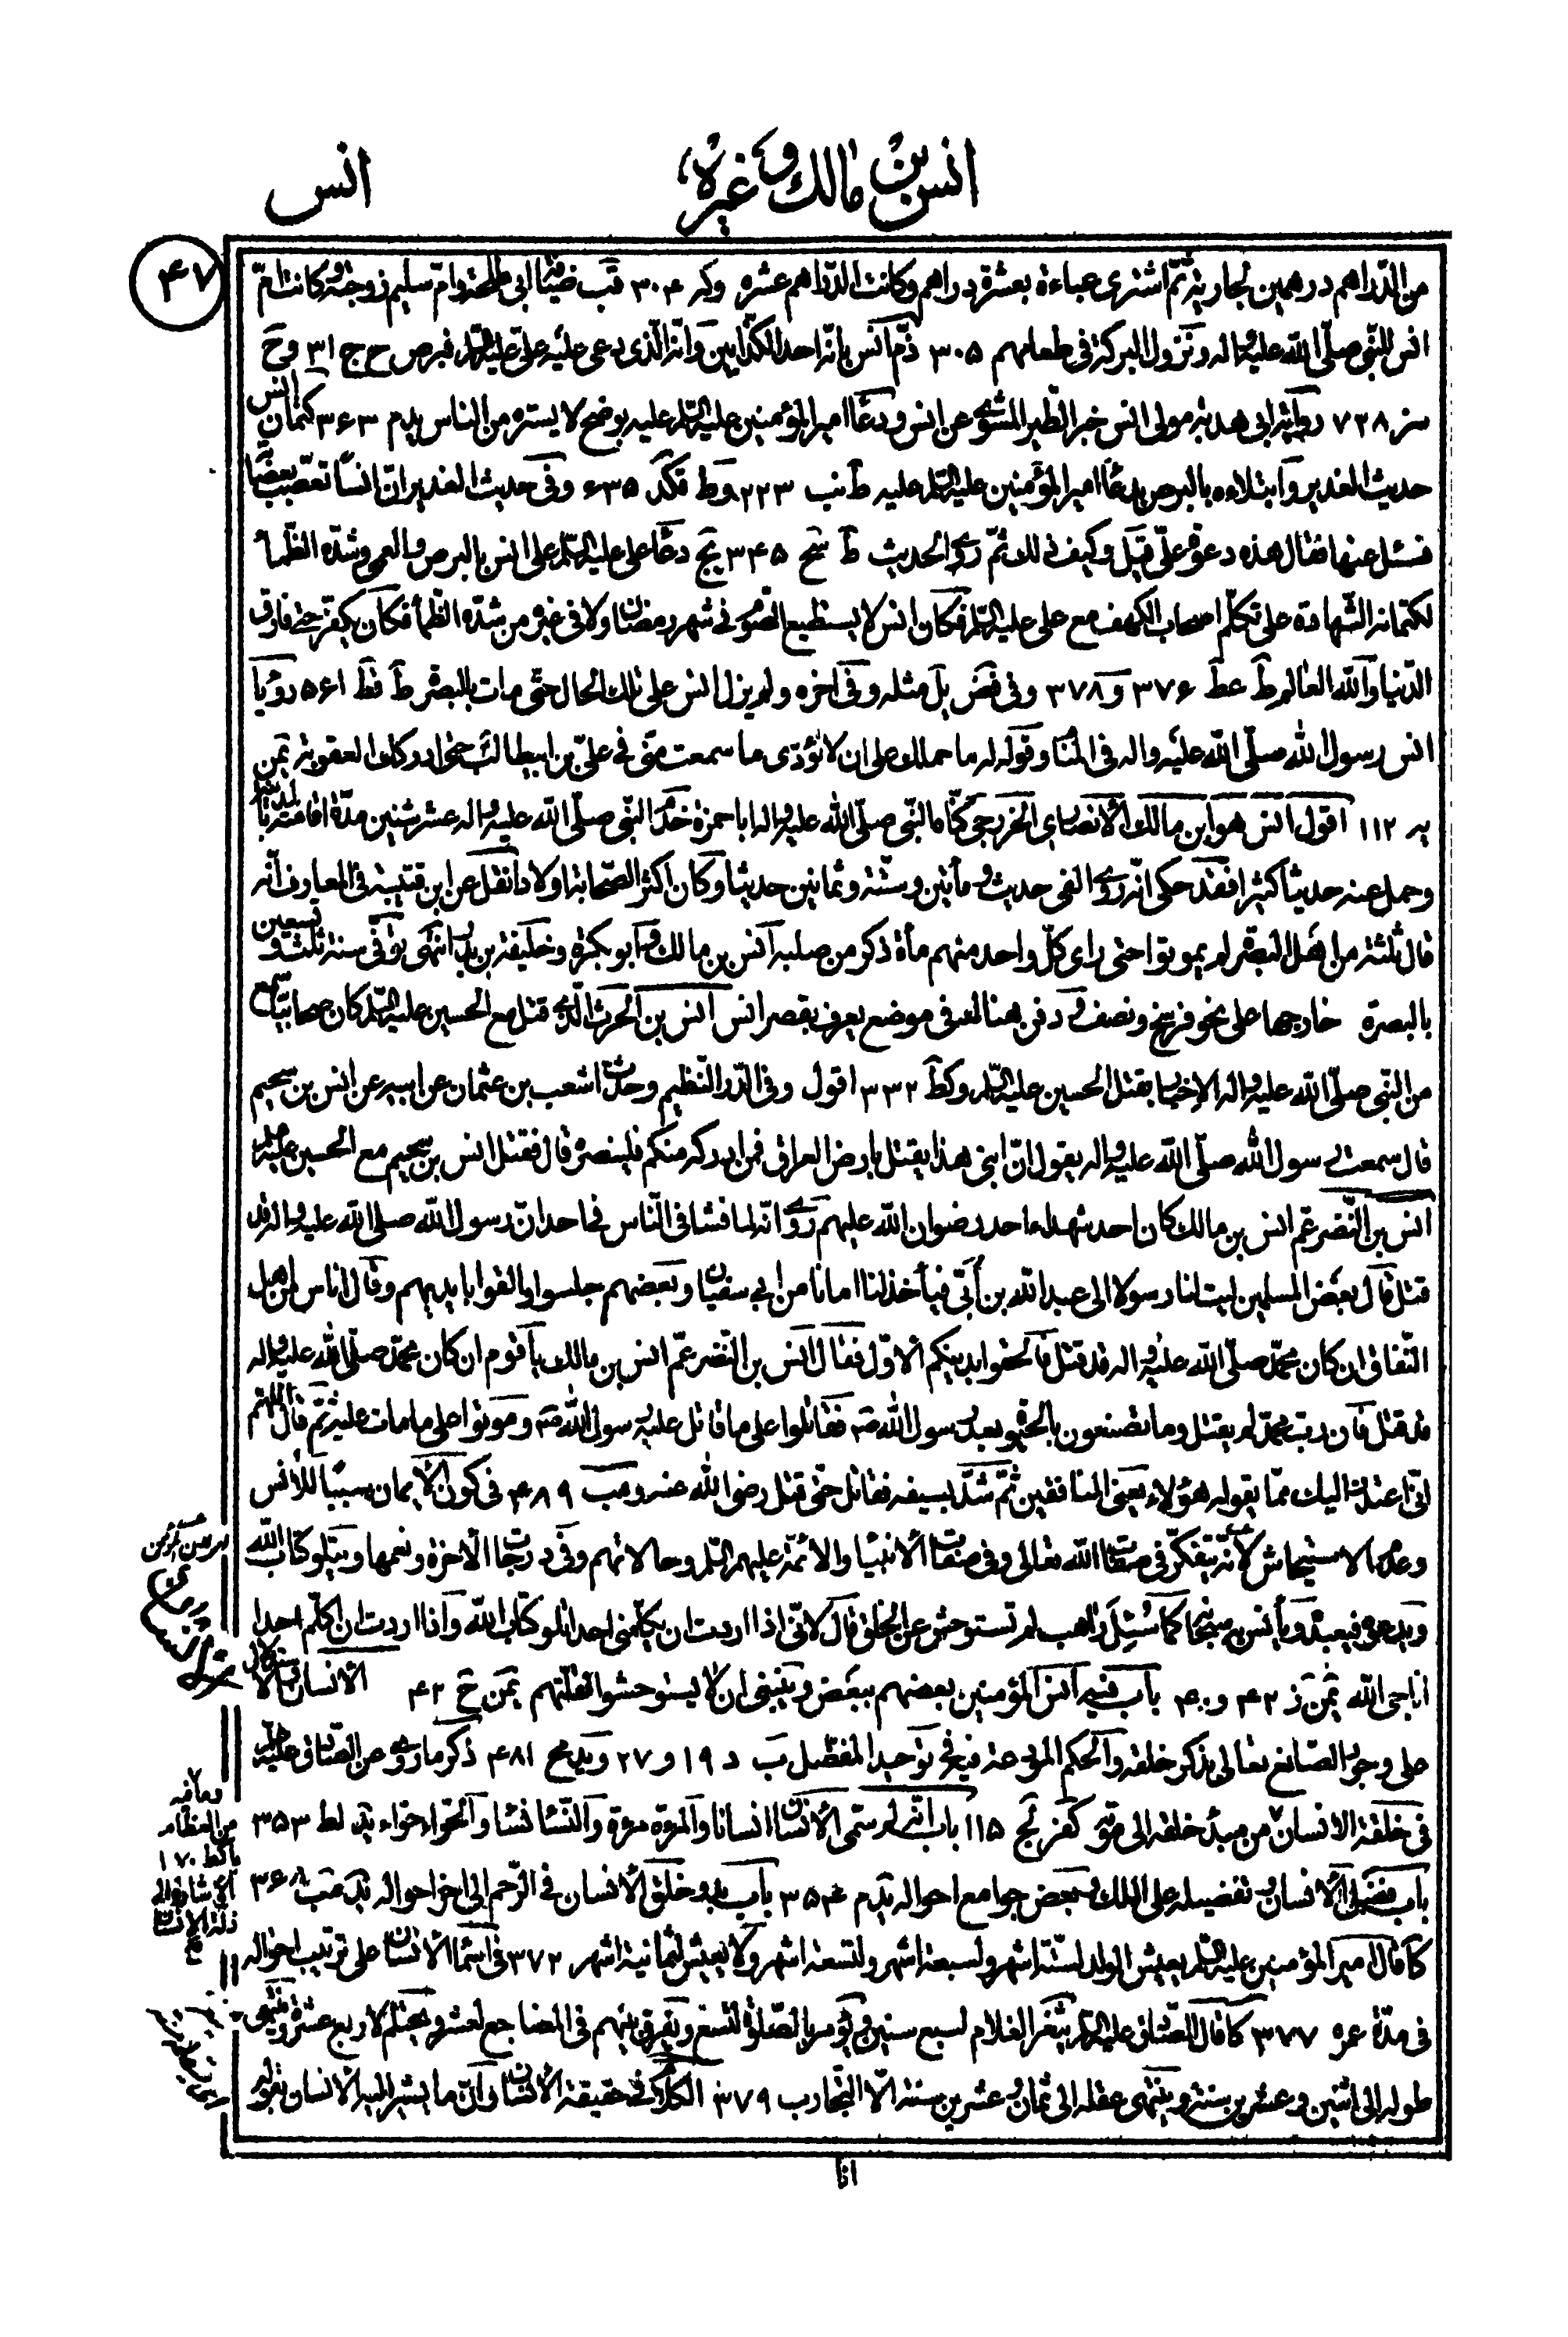 انس بن مالك وغيره
انس
۴۷
من الدّراهم درهمين لجارية ثمّ اشترى عباءة بعشرة دراهم وكانت الدّراهم عشره وكه ۳۰۴ قب ضيافة ابي طلحة وامّ سليم زوجته وكانت امّ
انس للنّبي صلّى الله عليه واله ونزول البركة في طعامهم ۳۰۵ ذمّ انس بانّه احد الكذّابين وانّه الّذى دعى عليه علىّ عليه السّلم فبرص ح ج ۳۱ وح
سز ۷۲۸ رواية ابي هدبة مولى انس خبر الطّير المشوي عن انس ودعاء امير المؤمنين عليه السّلم عليه بوضح لا يستره من الناس يدم ۳۶۳ كتمان انس
حديث الغدير وابتلاءه بالبرص بدعاء امير المؤمنين عليه السّلم عليه ط نب ۲۲۳ وط قكد ۶۳۵ وفي حديث الغدير انّ انسًا تعصّب بعصابة
فسئل عنها فقال هذه دعوة علىّ قيل وكيف ذلك ثمّ روى الحديث ط سح ۳۴۵ يج دعاء على عليه السّلم على انس بالبرص والعمى وشدّة الظّماء
لكتمانه الشّهادة على تكلّم اصحاب الكهف مع على عليه السّلم فكان انس لا يستطيع الصّوم في شهر رمضان ولا في غيره من شدّة الظّمأ فكان يكفّر حتى فارق
الدّنيا والله العالم ط عط ۳۷۶ و ۳۷۸ وفي فض يل مثله وفي اخره ولم يزل انس على ذلك الحال حتّى مات بالبصرة ط قط ۵۶۱ رؤيا
انس رسول الله صلّى الله عليه واله في المنام وقوله له ما حملك على ان لا تؤدّى ما سمعت منّى في علىّ بن ابيطالب حتى ادركك العقوبة يمن
يه ۱۱۲ اقول انس هو ابن مالك الأنصاري الخزرجي كنّاه النّبي صلّى الله عليه واله ابا حمزة خدم النّبي صلّى الله عليه واله عشر سنين مدّة اقامته بالمدينة
وحمل عنه حديثًا كثيرا فقد حكى انّه روى الفى حديث ومأتين وستّة وثمانين حديثا وكان اكثر الصّحابة اولادا نقل عن ابن قتيبة في المعارف انّه
قال ثلثة من اهل البصرة لم يموتوا حتى راى كلّ واحد منهم مأة ذكر من صلبه انس بن مالك وابو بكرة وخليفة بن بدر انتهى توفّى سنة ثلث وتسعين
بالبصرة خارجها على نحو فرسخ ونصف ودفن هناك في موضع يعرف بقصر انس انس بن الحرث الّذي قتل مع الحسين عليه السّلم كان صحابيّا سمع
من النّبي صلّى الله عليه واله الإخبار بقتل الحسين عليه السّلم وكط ۳۳۲ اقول وفي الدّر النّظيم وحدّث اشعب بن عثمان عن ابيه عن انس بن سحيم
قال سمعت رسول الله صلّى الله عليه واله يقول انّ ابنى هذا يقتل بارض العراق فمن ادركه منكم فلينصره قال فقتل انس بن سحيم مع الحسين عليه السّلم
انس بن النّضر عم انس بن مالك كان احد شهداء احد رضوان الله عليهم روى انّه لما فشا في النّاس في احد انّ رسول الله صلى الله عليه واله قد
قتل قال بعض المسلمين ليت لنا رسولا الى عبد الله بن أُبّي فيأخذ لنا امانا من ابي سفيان وبعضهم جلسوا والقوا بايديهم وقال اناس من اهل
النّفاق ان كان محمّد صلّى الله عليه واله قد قتل فالحقوا بدينكم الاوّل فقال انس بن النّضر عمّ انس بن مالك يا قوم ان كان محمّد صلّى الله عليه واله
قد قتل فان ربّ محمّد لم يقتل وما تصنعون بالحيوة بعد رسول الله ص فقاتلوا على ما قاتل عليه رسول الله ص وموتوا على ما مات عليه ثمّ قال اللهمّ
انّى اعتذر اليك ممّا يقوله هؤلاء يعنى المنافقين ثمّ شدّ بسيفه فقاتل حتّى قتل رضى الله عنه ومب ۴۸۹ في كون الإيمان سببًا للأنس
وعدم الاستيحاش لانّه يتفكّر في صفات الله تعالى وفي صفات الأنبياء والائمّة عليهم السّلم وحالاتهم وفي درجات الأخرة ونعمها ويتلو كتاب الله
ويدعوه فيعبده ويأنس به سبحانه كما سُئِلَ راهب لم تستوحش عن الخلق قال لانّى اذا اردت ان يكلّمنى احد اتلو كتاب الله واذا اردت ان اكلّم احدا
اناجى الله يمن ز ۴۲ و ۴۰ باب فيه انس المؤمنين بعضهم ببعض وينبغى ان لا يستوحشوا لقلّتهم يمن ح ۴۲ الانسان الاستدلال
على وجود الصّانع تعالى بذكر خلقه والحكم المودعة فيه في توحيد المفضّل ب د ۱۹ و ۲۷ ويد مح ۴۸۱ ذكر ما روى عن الصّادق عليه السّلم
في خلقة الانسان من مبدء خلقه الى موته كفر لج ۱۱۵ باب انّه لم سمّى الأنسان انسانا والمرءة مرءة والنّساء نساء والحوّاء حوّاء يد لط ۳۵۳
باب فضل الأنسان وتفضيله على الملك وبعض جوامع احواله يد م ۳۵۴ باب بدو خلق الأنسان في الرّحم الى اخر احواله يد مب ۳۶۸
كا قال امير المؤمنين عليه السّلم يعيش الولد لستّة اشهر ولسبعة اشهر ولتسعة اشهر ولا يعيش لثمانية اشهر ۳۷۲ في اسماء الأنسان على ترتيب احواله
في مدّة عمره ۳۷۷ كا قال الصّادق عليه السّلم يثغر الغلام لسبع سنين ويؤمر بالصّلوة لتسع ويفرق بينهم في المضاجع لعشر ويحتلم لاربع عشرة ومنتهى
طوله الى اثنين وعشرين سنة وينتهى عقله الى ثمان وعشرين سنة الّا التّجارب ۳۷۹ الكلام في حقيقة الأنسان وانّ ما يشير اليه الانسان بقوله
انا
وما فيه
من العظام